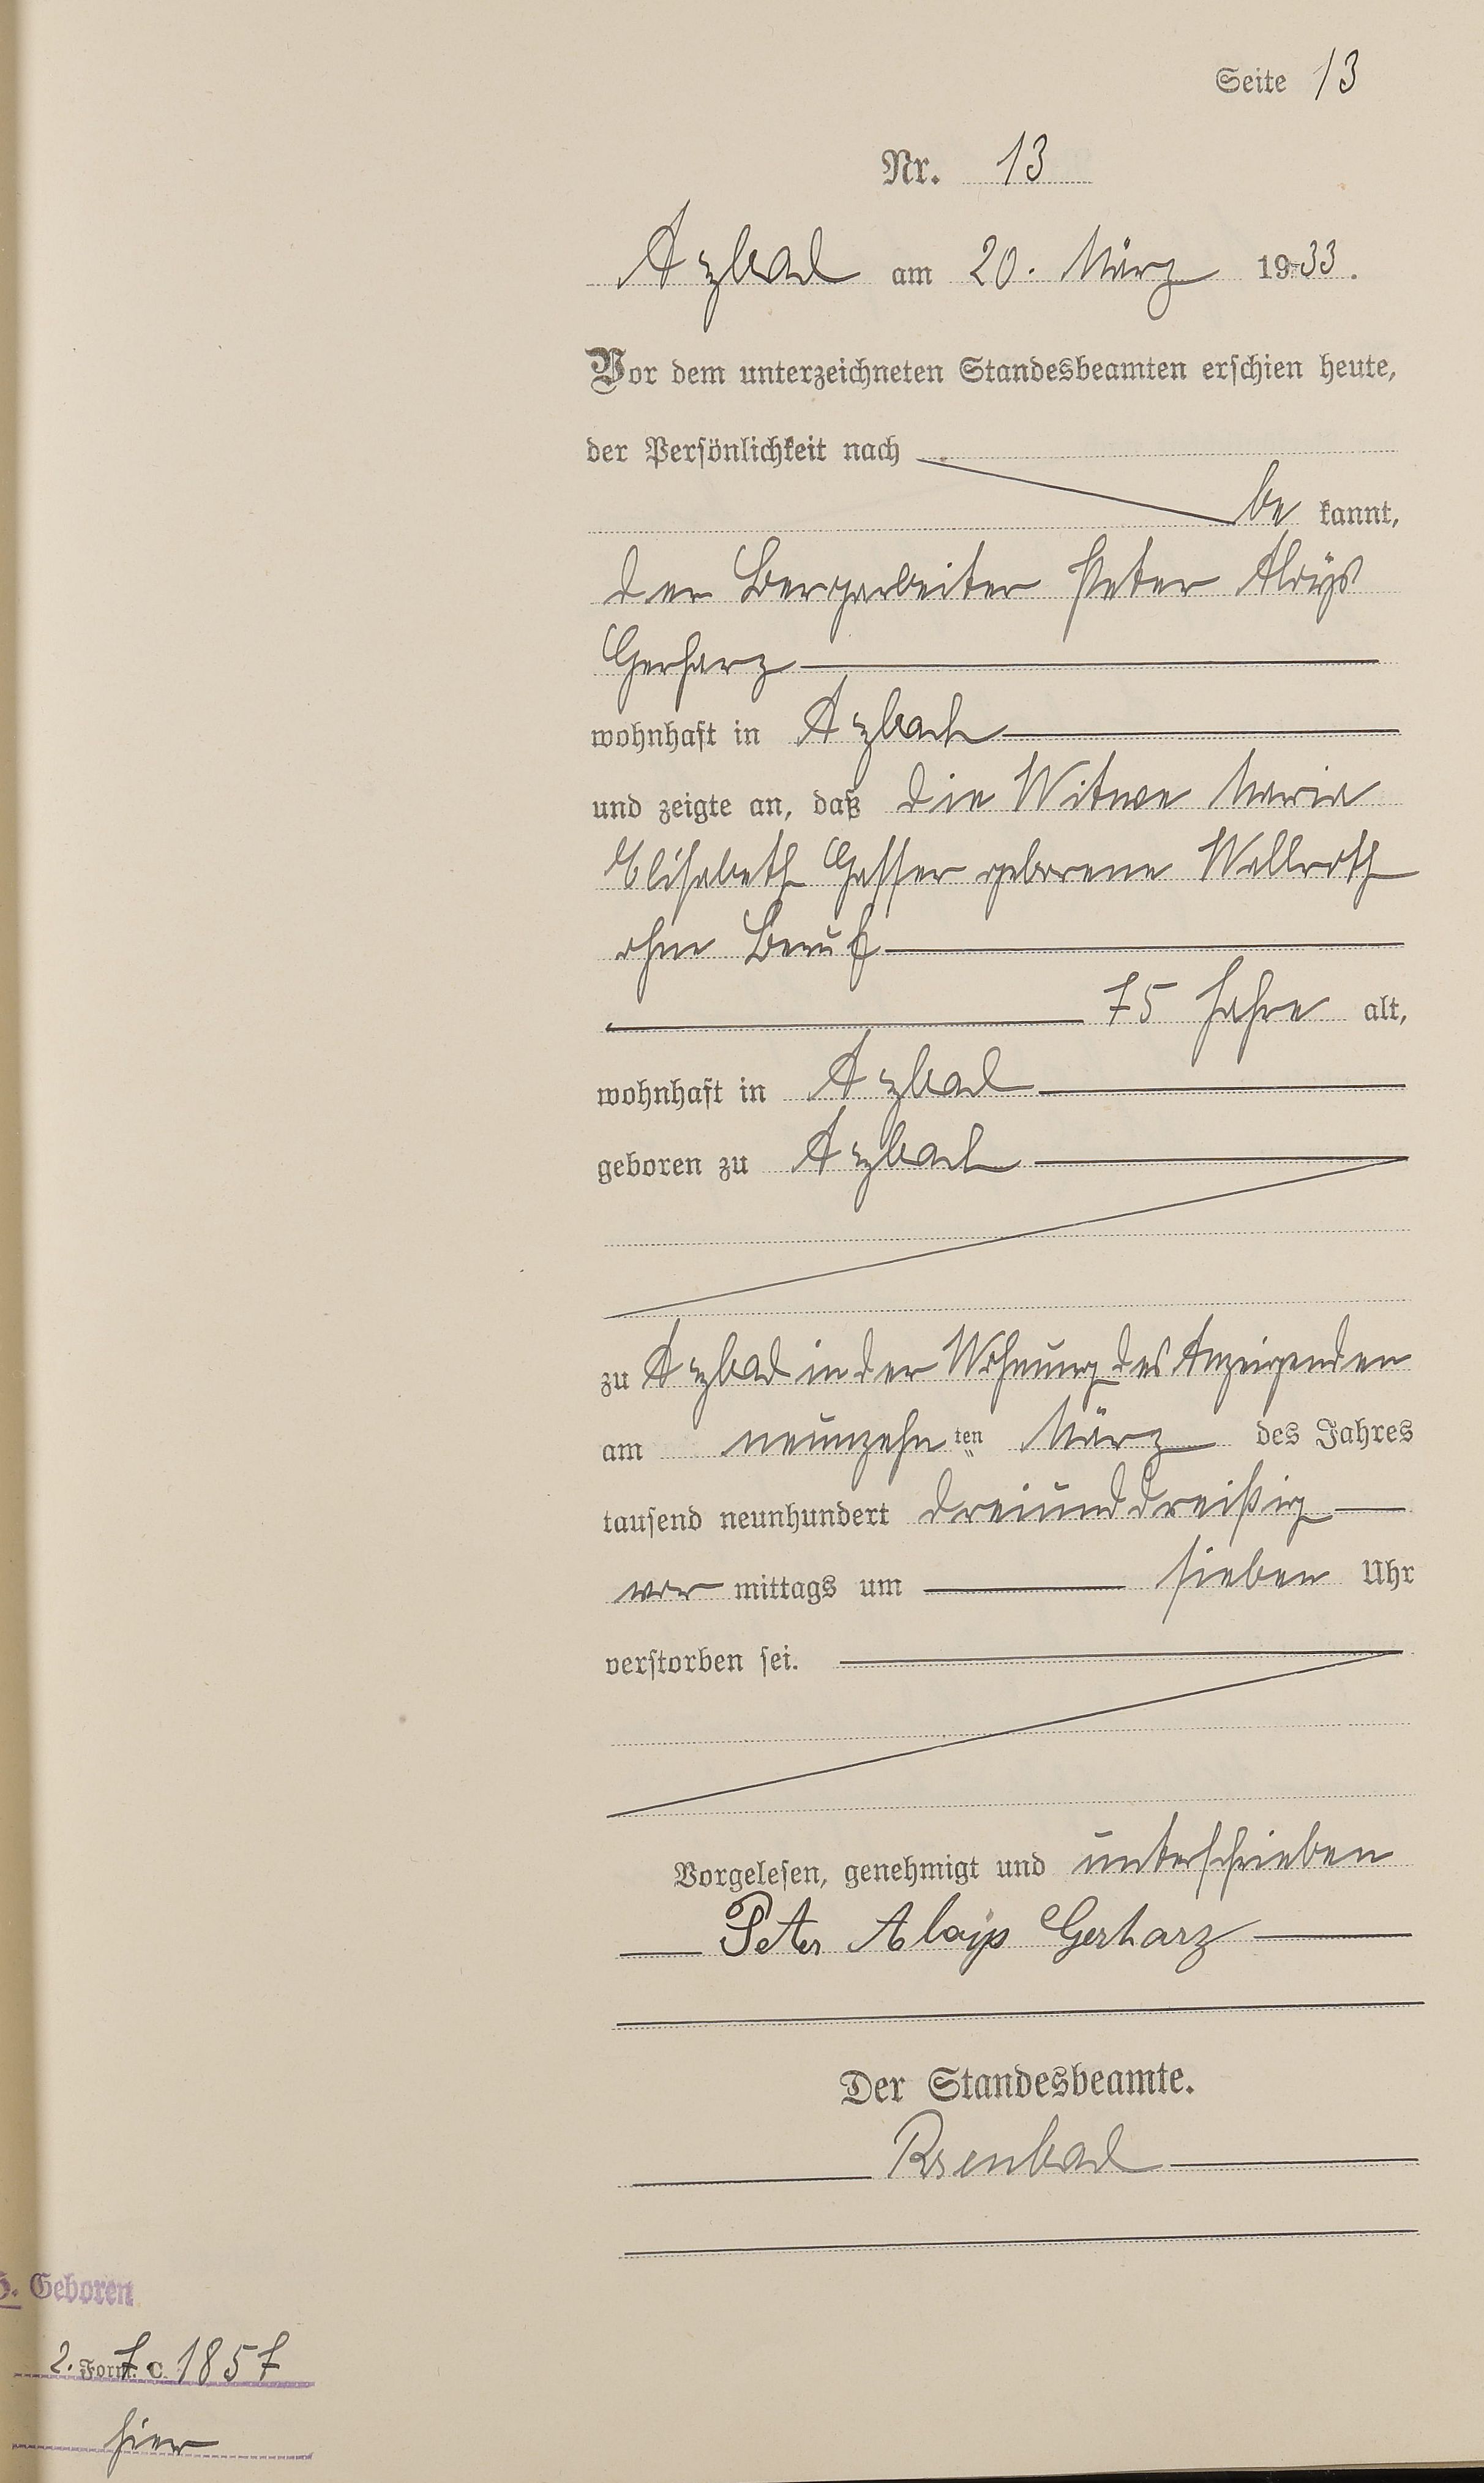 Seite 13
Nr. 13
Arzbach am 20. März 1933.
Vor dem unterzeichneten Standesbeamten erschien heute,
der Persönlichkeit nach
be kannt,
der Bergarbeiter Peter Aloÿs
Gerharz
wohnhaft in Arzbach
und zeigte an, daß die Witwe Maria
Elisabeth Gasser geborene Wallroth
ohne Beruf
75 Jahre alt,
wohnhaft in Arzbach
geboren zu Arzbach
zu Arzbach in der Wohnung des Anzeigenden
am neunzehn ten März des Jahres
tausend neunhundert dreiunddreißig
vor mittags um sieben Uhr
verstorben sei.
Vorgelesen, genehmigt und unterschrieben
Peter Aloys Gerharz
Der Standesbeamte.
Geboren
2. 7. 1857
Form. C.
hier